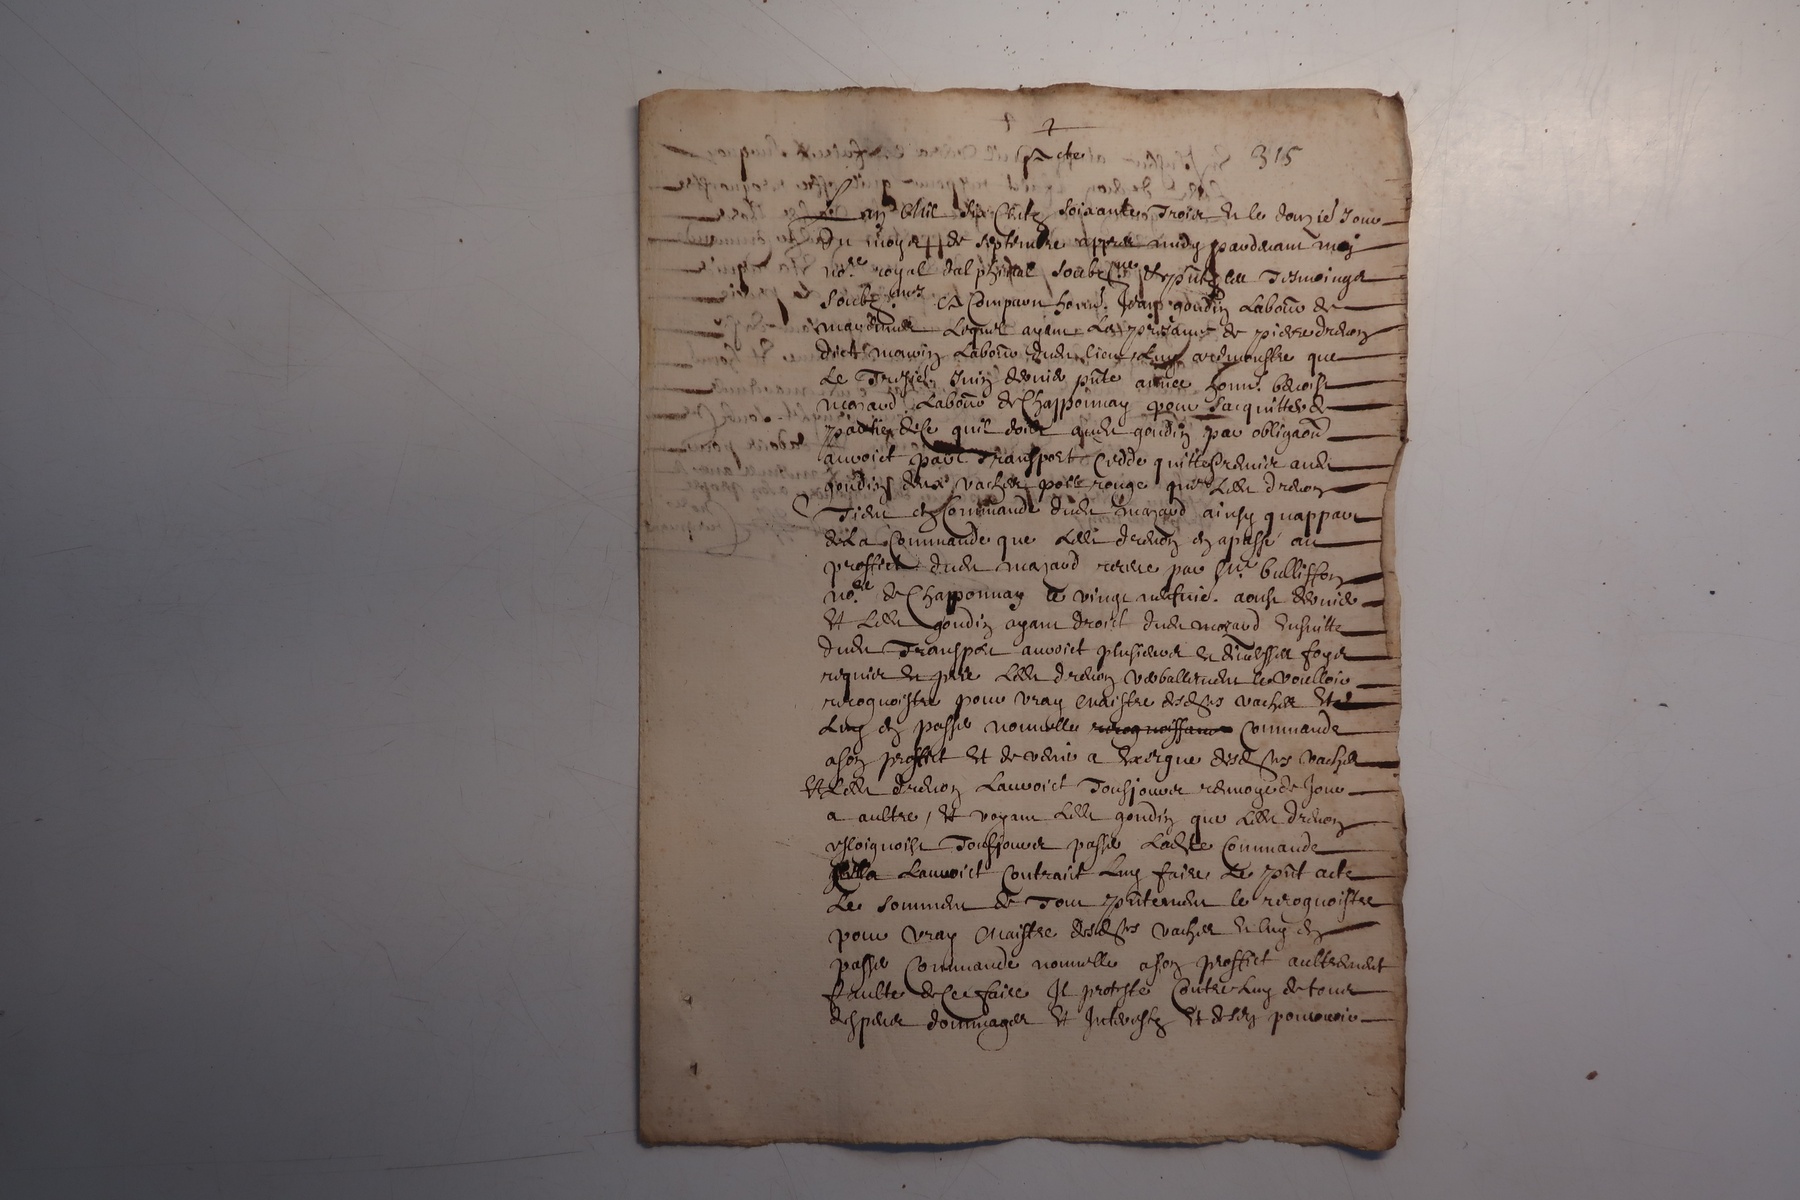 Acte
315
L an mil six centz soixante trois et le douzie Jour
du moys de septembre appres midy pardevant moy
no.re royal dalphinal soubz.ne et pntz les tesmoings
soubz nes a Comparu hon. Jean goudin Labour de
Lequel ayant La pnsance de pierre drevon
Labour dudt lieu Luy a remonstre que
Le Juin dernier pnte annee honn. benoist
mozard Labour de Chapponnay pour sacquitter de
partie de Ce quil doibt audt goudin par obligaon
auroict par transport Cedde quitte remis audt
goudin deux vaches poil rouge que Ledt drevon
tient en Commande dudt mozard ainsy quappert
de La Commande que Ledt drevon en a passe au
proffict dudt mozard receue par Me bullisson
no.re de Chapponnay le vingt neufvie. aoust dernier
Et Ledt goudin ayant droict dudt mozard Ensuitte
dudt Transport auroict plusieurs et diversses foyes
requis et prie Ledt drevon verballement le voulloir
recognoistre pour vray maistre desdes vaches Et
Luy en passer nouvelle recognoissance Commande
a son proffict Et de venir a Exergue desdes vaches
Et Ledt drevon Lauroict tousjours renvoye de Jour
a aultre / Et voyant Ledt goudin que Ledt drevon
esloignoist Tousjours passer Ladte Commande
Cella Lauroict Contraict Luy faire Le pnt acte
Le sommant de Tout pntement le recognoistre
pour vray maistre desdes vaches et luy en
passer Commande nouvelle a son proffict aultrement
faulte de Ce faire Il proteste Contre Luy de tous
despens dommages Et Interestz Et de sen pourvoir